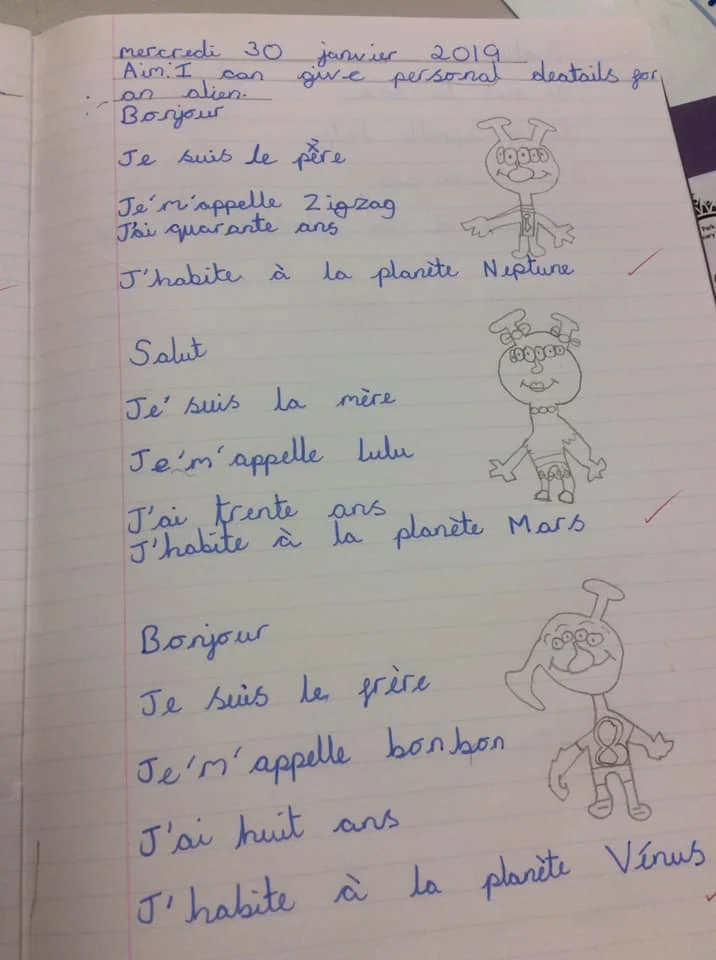 mercredi 30 janvier 2019
Aim: I can give personal deatails for
an alien.
Bonjour
Je suis le père
Je'm'appelle Zigzag
J'ai quarante ans
J'habite à la planète Neptune
Salut
Je' suis la mère
Je'm'appelle Lulu
J'ai trente ans
J'habite à la planète Mars
Bonjour
Je suis le frère
Je'm'appelle bonbon
8
J'ai huit ans
J'habite à la planète Vénus